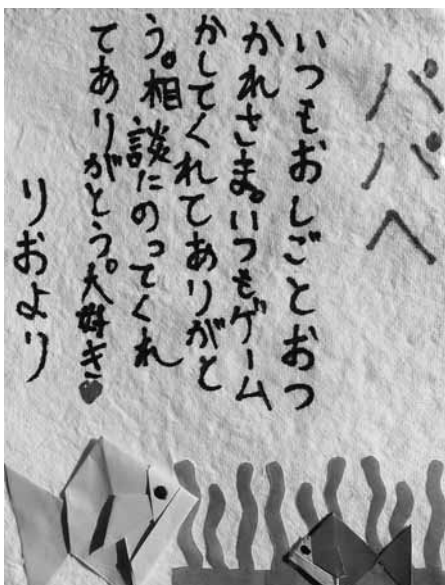 パパへ
いつもおしごとおつ
かれさま。いつもゲーム
かしてくれてありがと
う。相談にのってくれ
てありがとう。大好き♥
りおより